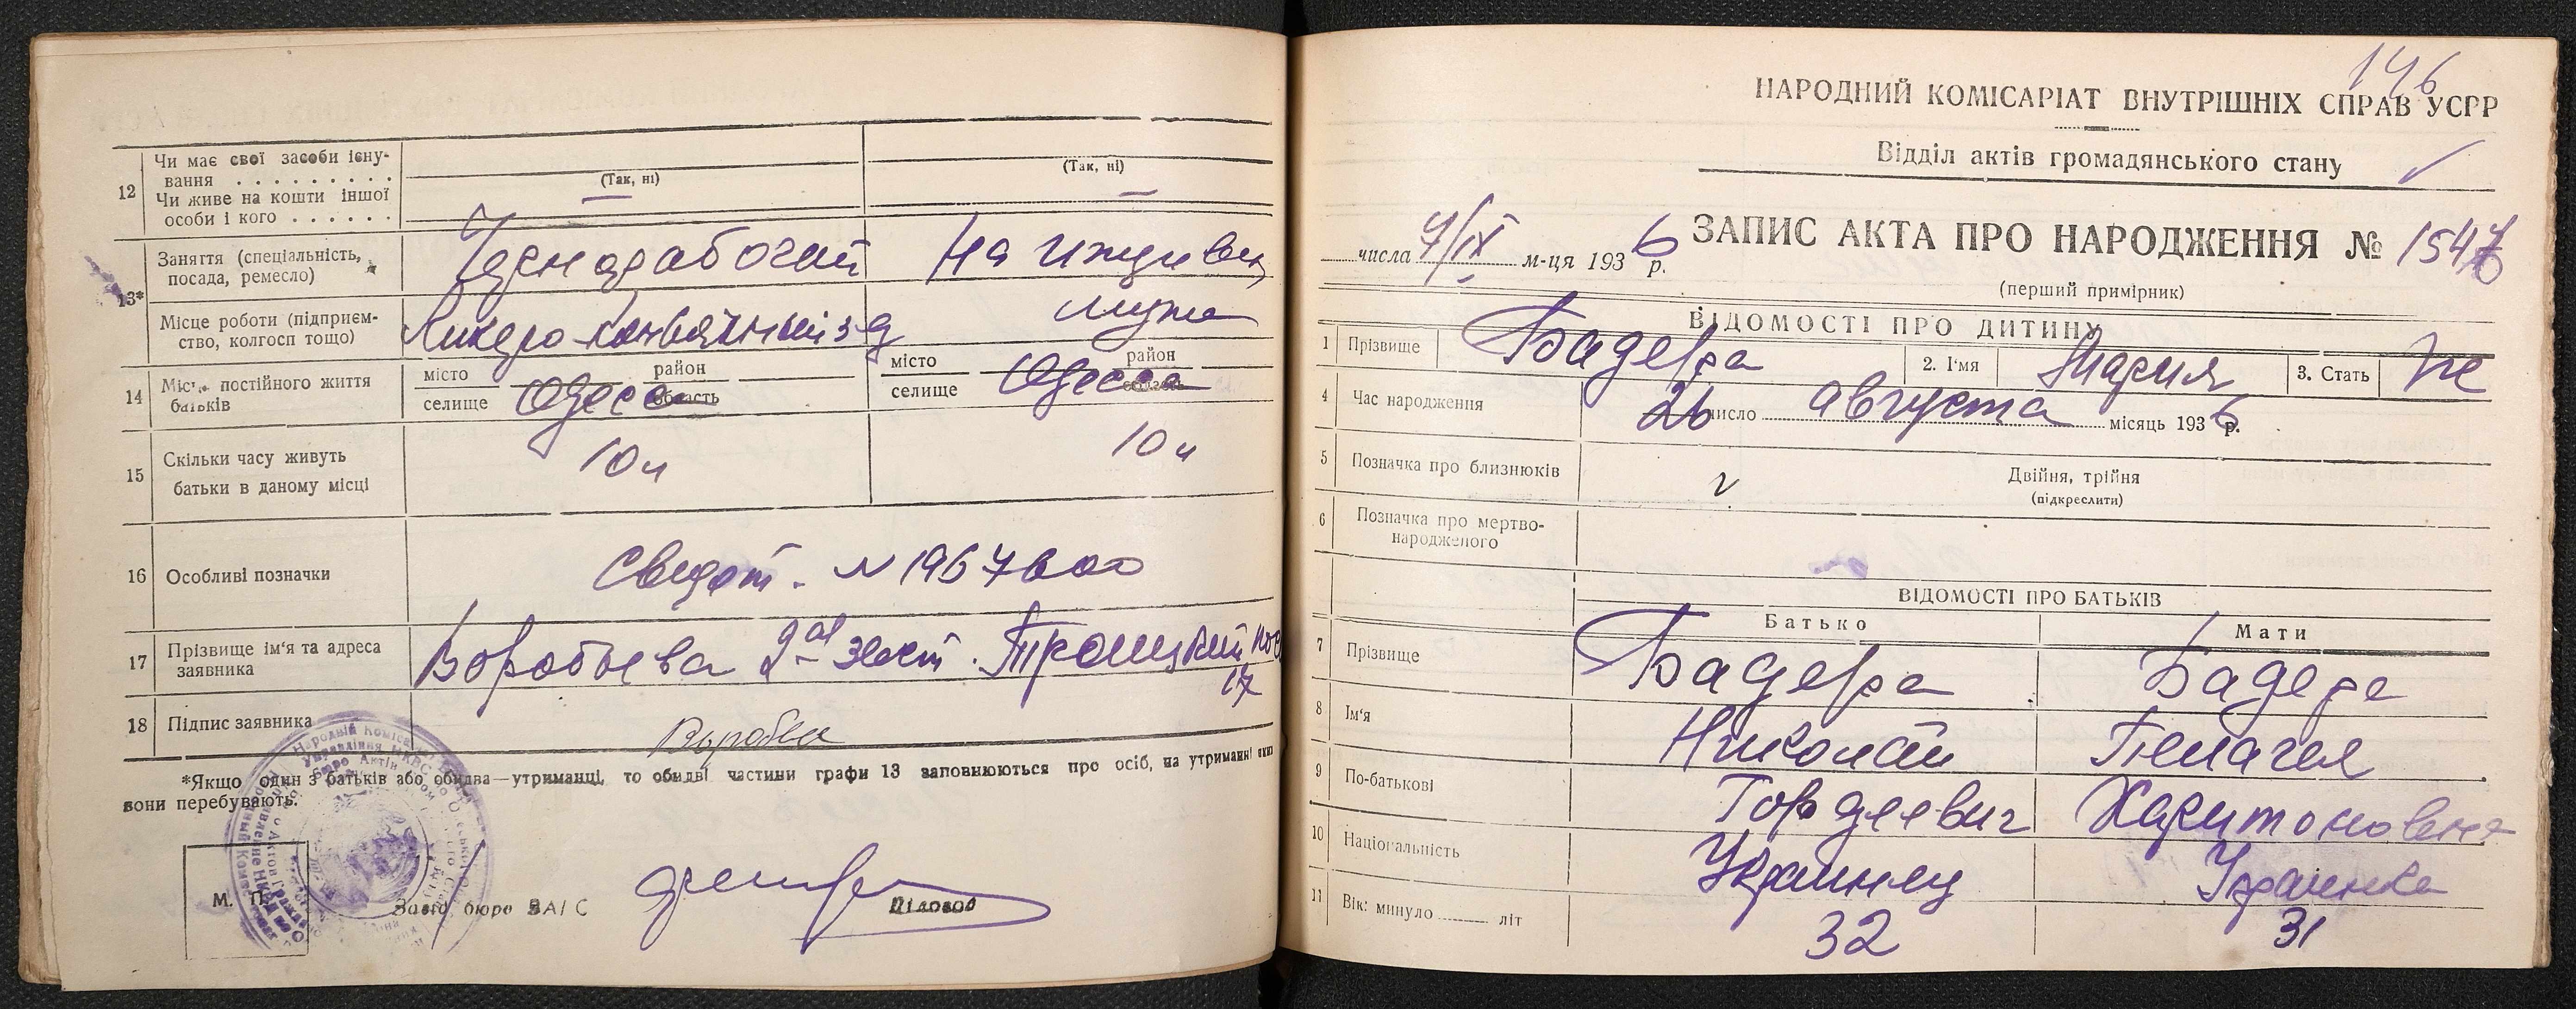 12
Чи має свої засоби існу-
вання . . . . . . . . .
Чи живе на кошти іншої
особи і кого . . . . . .
(Так, ні)
—
(Так, ні)
—
13*
Заняття (спеціальність,
посада, ремесло)
Чернорабочий
На иждивен
Місце роботи (підприєм-
ство, колгосп тощо)
Ликеро коньячный з-д
мужа
14
Місце постійного життя
батьків
місто
селище
район
область
Одесса
місто
селище
район
область
Одесса
15
Скільки часу живуть
батьки в даному місці
10 л
10 л
16
Особливі позначки
Свидет. N
17
Прізвище ім'я та адреса
заявника
Воробьева
17
18
Підпис заявника
*Якщо один з батьків або обидва—утриманці, то обидві частини графи 13 заповнюються про осіб, на утриманні яких
вони перебувають.
М. П.
Завід бюро ЗАГС
Діловод
146
НАРОДНИЙ КОМІСАРІАТ ВНУТРІШНІХ СПРАВ УСРР
Відділ актів громадянського стану
ЗАПИС АКТА ПРО НАРОДЖЕННЯ №
числа 7/IX м-ця 1936 р.
(перший примірник)
ВІДОМОСТІ ПРО ДИТИНУ
1 Прізвище Бадера 2. І'мя Мария 3. Стать Ж
4 Час народження 26 число августа місяць 1936 р.
5 Позначка про близнюків
Двійня, трійня
(підкреслити)
6 Позначка про мертво-
народженого
ВІДОМОСТІ ПРО БАТЬКІВ
Батько Мати
7 Прізвище Бадера Бадера
8 Ім'я Николай Пелагея
9 По-батькові Гордеевич Харитоновна
10 Національність Украинец Украинка
11 Вік: минуло ........ літ 32 31